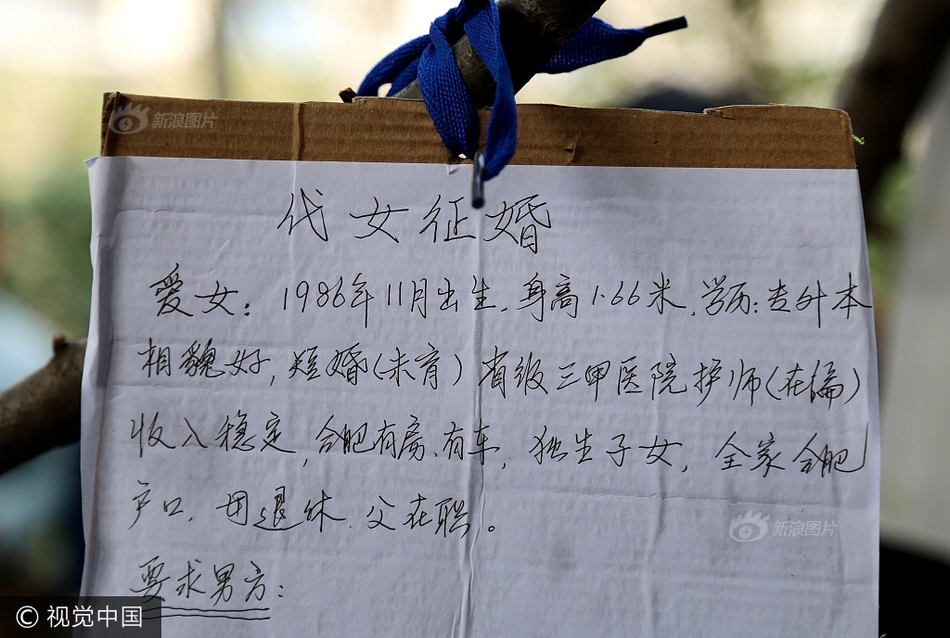 新浪图片
代女征婚
爱女：1986年11月出生.身高1.66米.学历：专外本
相貌好,短婚(未育)省级三甲医院护师(在编)
收入稳定,合肥有房、有车,独生子女,全家合肥
户口.母退休.父在职。
新浪图片
要求男方：
© 视觉中国